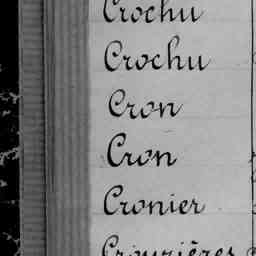 Crochu
Crochu
Cron
Cron
Cronier